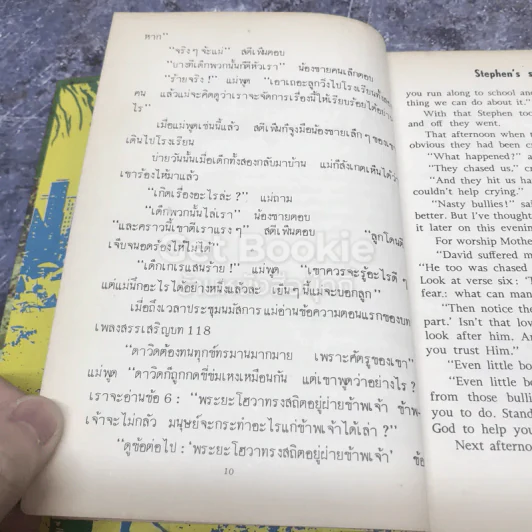 หาก"
"จริงๆ จ้ะแม่" สตีเฟ่นตอบ
"บางทีเด็กพวกนั้นก็ตีหัวเรา" น้องชายคนเล็กตอบ
"ร้ายจริง!" แม่พูด "เอาเถอะลูกวิ่งไปโรงเรียนทั้งสอง
คน แล้วแม่จะคิดดูว่าเราจะจัดการเรื่องนี้ให้เรียบร้อยได้อย่าง
ไร"
เมื่อแม่พูดเช่นนี้แล้ว สตีเฟ่นก็จูงมือน้องชายเล็กๆ ของเขา
เดินไปโรงเรียน
บ่ายวันนั้นเมื่อเด็กทั้งสองกลับมาบ้าน แม่ก็สังเกตเห็นได้ว่า
เขาร้องไห้มาแล้ว
"เกิดเรื่องอะไรล่ะ?" แม่ถาม
"เด็กพวกนั้นไล่เรา" น้องชายตอบ
"และคราวนี้เขาตีเราแรงๆ" สตีเฟ่นตอบ "ลูกโดนตี
เจ็บจนอดร้องไห้ไม่ได้"
"เด็กเกเรแสนร้าย!" แม่พูด "เขาควรจะรู้อะไรดีๆ
แต่แม่นึกอะไรได้อย่างหนึ่งแล้วล่ะ เย็นๆ นี้แม่จะบอกลูก"
เมื่อถึงเวลาประชุมนมัสการ แม่อ่านข้อความตอนแรกของบท
เพลงสรรเสริญบท 118
"ดาวิดต้องทนทุกข์ทรมานมากมาย เพราะศัตรูของเขา"
แม่พูด "ดาวิดก็ถูกกดขี่ข่มเหงเหมือนกัน แต่เขาพูดว่าอย่างไร?
เราจะอ่านข้อ 6: "พระยะโฮวาทรงสถิตอยู่ฝ่ายข้าพเจ้า ข้าพ-
เจ้าจะไม่กลัว มนุษย์จะกระทำอะไรแก่ข้าพเจ้าได้เล่า?"
"ดูข้อต่อไป: 'พระยะโฮวาทรงสถิตอยู่ฝ่ายข้าพเจ้า' ข้อ
10
Stephen's s
you run along to school and
thing we can do about it."
With that Stephen too
and off they went.
That afternoon when t
obvious they had been cr
"What happened?" a
"They chased us," cr
"And they hit us ha
couldn't help crying."
"Nasty bullies!" sai
better. But I've thought
it later on this evening
For worship Mothe
"David suffered m
"He too was chased
Look at verse six: "T
fear.: what can man
"Then notice the
part.' Isn't that lov
look after him. An
you trust Him."
"Even little bo
"Even little bo
from those bulli
you to do. Stand
God to help you
Next afternoo
Bookie